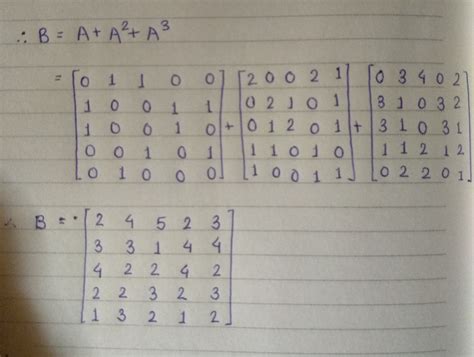 ∴ B = A + A² + A³
= [0 1 1 0 0] + [2 0 0 2 1] + [0 3 4 0 2]
[1 0 0 1 1] [0 2 1 0 1] [3 1 0 3 2]
[1 0 0 1 0] [0 1 2 0 1] [3 1 0 3 1]
[0 0 1 0 1] [1 1 0 1 0] [1 1 2 1 2]
[0 1 0 0 0] [1 0 0 1 1] [0 2 2 0 1]
∴ B = [2 4 5 2 3]
[3 3 1 4 4]
[4 2 2 4 2]
[2 2 3 2 3]
[1 3 2 1 2]